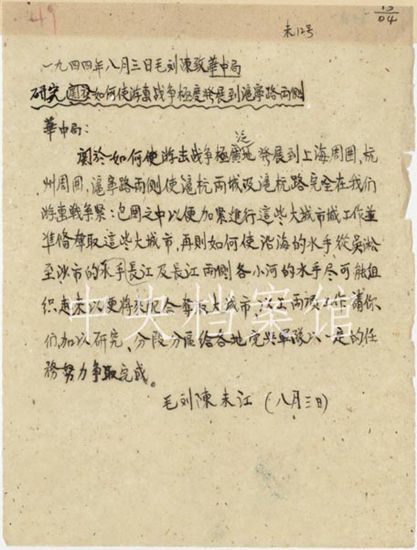 49
15
04
未12号
一九四四年八月三日毛刘陳致華中局
研究 如何使游击战争極度發展到滬寧路兩側
華中局：
關於如何使游击战争極廣泛地發展到上海周囲，杭
州周囲，滬寧路兩側使滬杭两城及滬杭路完全在我们
游击战争緊 包囲之中以便加緊進行這些大城市城工作並
準备奪取這些大城市，再则如何使沿海的水手，從吴淞
至沙市的水手長江及長江兩側各小河的水手尽可能組
织起来以便将来配合奪取大城市，以上两项工作請你
们加以研究，分段分區给各地党與軍隊以一定的任
務努力争取完成。
毛刘陳 未江（八月三日）
中央档案馆